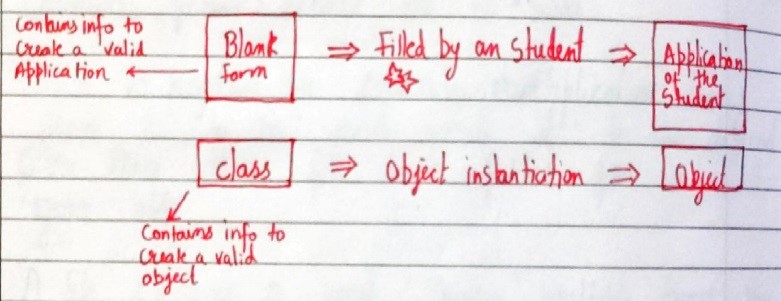 Contains info to
create a valid
Application
Blank
form
⇒ Filled by an student ⇒
Application
of the
Student
class ⇒ Object instantiation ⇒ Object
Contains info to
create a valid
object